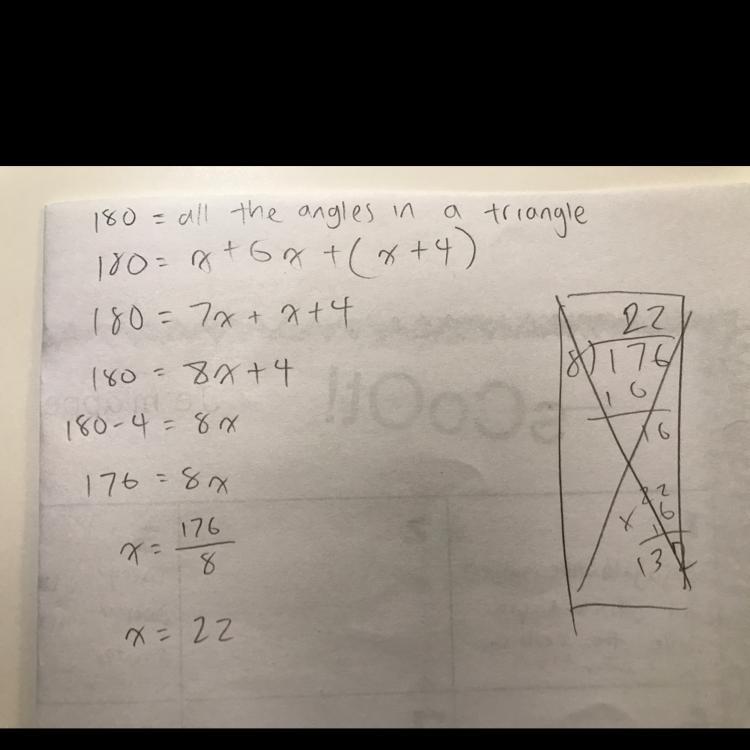 180 = all the angles in a triangle
180 = x + 6x + (x + 4)
180 = 7x + x + 4
180 = 8x + 4
180 - 4 = 8x
176 = 8x
x = 176/8
x = 22
22
8)176
16
16
22
x 6
1
132
sCoot!